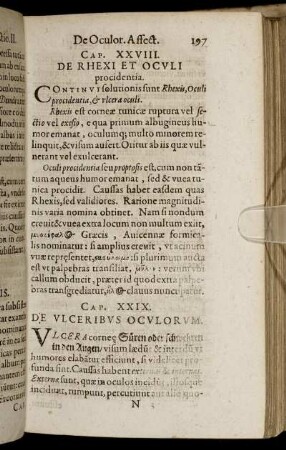 De Oculor. Affect. 197
CAP. XXVIII.
DE RHEXI ET OCVLI
procidentia.
CONTINVI solutionis sunt Rhexis, Oculi
procidentia, & vlcera oculi.
Rhexis est corneæ tunicæ ruptura vel se-
ctio vel exesio, e qua primum albugineus hu-
mor emanat, oculumq; multo minorem re-
linquit, & visum aufert. Oritur ab iis quæ vul-
nerant vel exulcerant.
Oculi procidentia seu proptosis est, cum non tã-
tum aqueus humor emanat, sed & vuea tu-
nica procidit. Caussas habet easdem quas
Rhexis, sed validiores. Ratione magnitudi-
nis varia nomina obtinet. Nam si nondum
creuit & vuea extra locum non multum exit,
Græcis, Auicennæ formica-
lis nominatur: si amplius creuit, vt acinum
vuæ repræsentet, si plurimum aucta
est vt palpebras transiliat, : vernum vbi
callum obducit, præter id quod extra palpe-
bras transgrediatur, clauus nuncupatur.
CAP. XXIX.
DE VLCERIBVS OCVLORVM.
VLCERA corneę Süren oder
in den Augen, visum lædũt & interdũ vt
humores elabãtur efficiunt, si
fundi sint. Caussas habent externas & internas.
Externæ sunt, quæ in oculos incidũt,
inciduat, rumpunt, percutiunt aut alio quo-
N